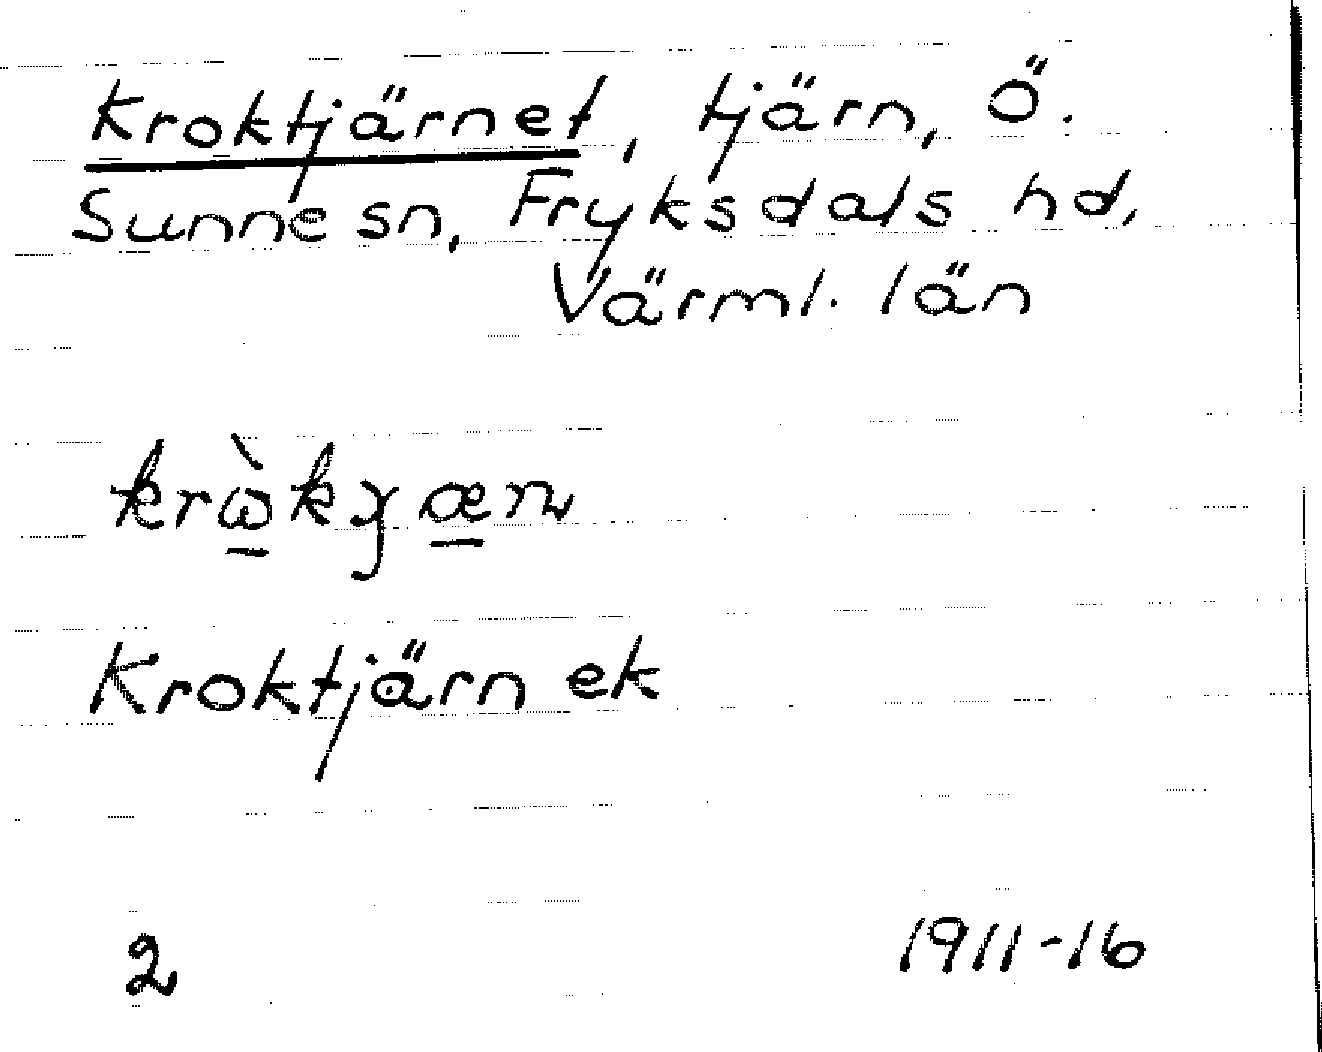 Kroktjärnet, tjärn, Ö.
Sunne sn, Fryksdals hd,
Värml. län
Kroktjärn ek
2
1911-16